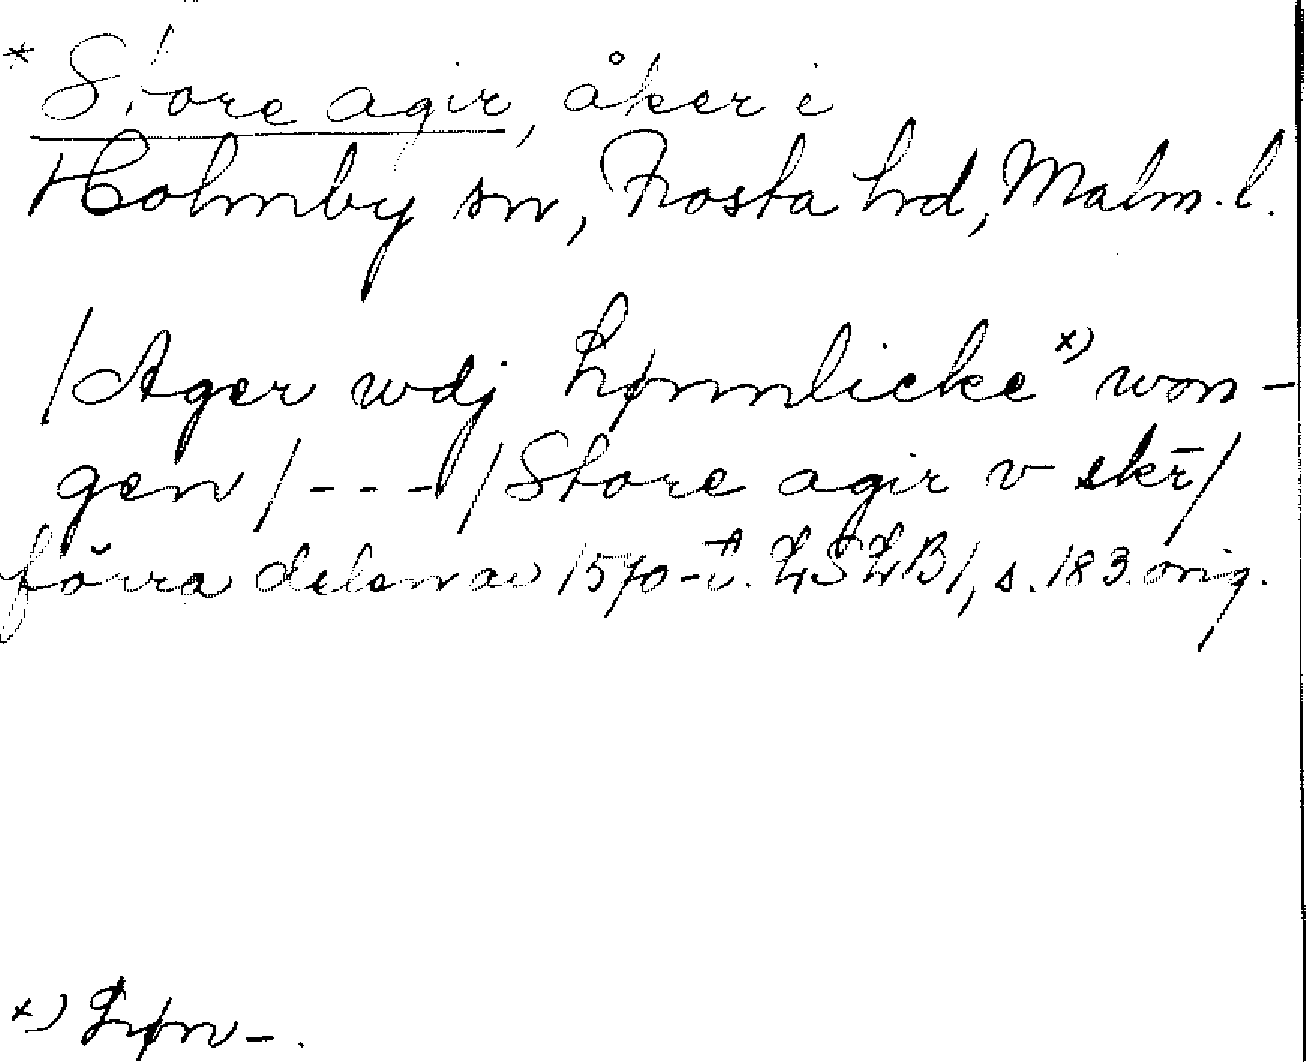 * Store agir, åker i
Holmby sn, Frosta hd, Malm. l.
/Ager wdj Lønnlicke x) won-
gen/---/Store agir v skr/
förra delen av 1570-t. LSLB/, s. 183 orig.
x) Løn-.